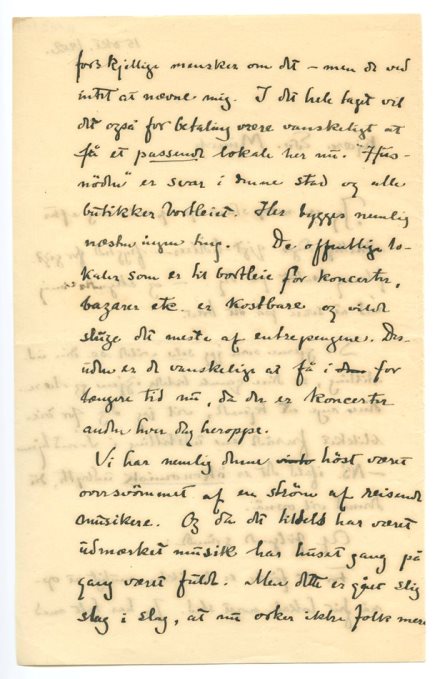 forskjellige mennesker om det – men de ved
intet at nævne mig. I det hele taget vil
det også for betaling være vanskeligt at
få et passende lokale her nu. "Hus-
nöden" er svær i denne stad og alle
butikker bortleiet. Her bygges nemlig
næsten ingen ting. De offentlige lo-
kaler som er til bortleie for koncerter,
bazarer etc. er kostbare og vilde
sluge det meste af entrepengene. Des-
uden er de vanskelige at få i for
længere tid nu, da der er koncerter
anden hver dag heroppe.
Vi har nemlig denne höst været
oversvömmet af en ström af reisende
musikere. Og da det tildels har været
udmærket musik har huset gang på
gang været fuldt. Men dette er gået slig
slag i slag, at nu orker ikke folk mere